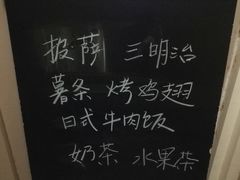 披萨 三明治
薯条 烤鸡翅
日式牛肉饭
奶茶 水果茶